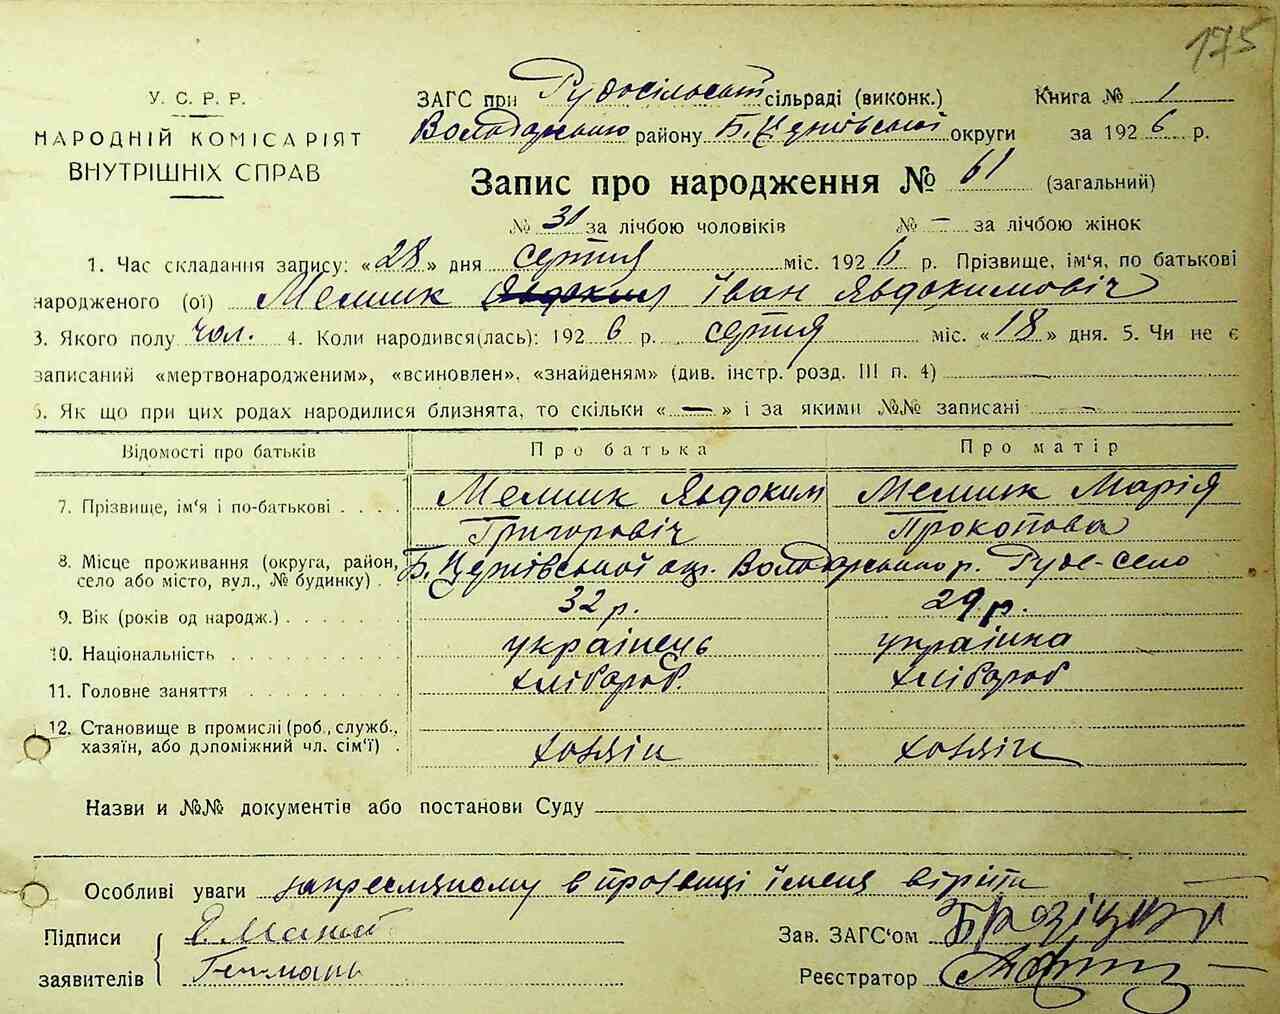 175
У. С. Р. Р.
НАРОДНІЙ КОМІСАРІЯТ
ВНУТРІШНІХ СПРАВ
ЗАГС при Рудосільскій сільраді (виконк.) Книга № 1
Володарського району Б. Церківської округи за 1926 р.
Запис про народження № 61 (загальний)
№ 31 за лічбою чоловіків № — за лічбою жінок
1. Час складання запису: «28» дня серпня міс. 1926 р. Прізвище, ім'я, по батькові
народженого (ої) Мельник Явдоким Іван Явдокимовіч
3. Якого полу чол. 4. Коли народився(лась): 1926 р. серпня міс. «18» дня. 5. Чи не є
записаний «мертвонародженим», «всиновлен», «знайденям» (див. інстр. розд. III п. 4) —
6. Як що при цих родах народилися близнята, то скільки «—» і за якими №№ записані —
Відомості про батьків Про батька Про матір
7. Прізвище, ім'я і по-батькові . . . . Мельник Явдоким Мельник Марія
Григоровіч Прокопова
8. Місце проживання (округа, район,
село або місто, вул., № будинку) . Б. Церківської окр. Володарського р. Руде-село
9. Вік (років од народж.) . . . . . . 32 р. 29 р.
10. Національність . . . . . . . . . українець українка
11. Головне заняття . . . . . . . . хлібороб. хлібороб
12. Становище в промислі (роб., служб.,
хазяїн, або допоміжний чл. сім'ї) . хозяін хозяін
Назви и №№ документів або постанови Суду
Особливі уваги в прозвищі імєня віріти
Підписи
заявителів
Гетьмань
Зав. ЗАГС'ом
Реєстратор